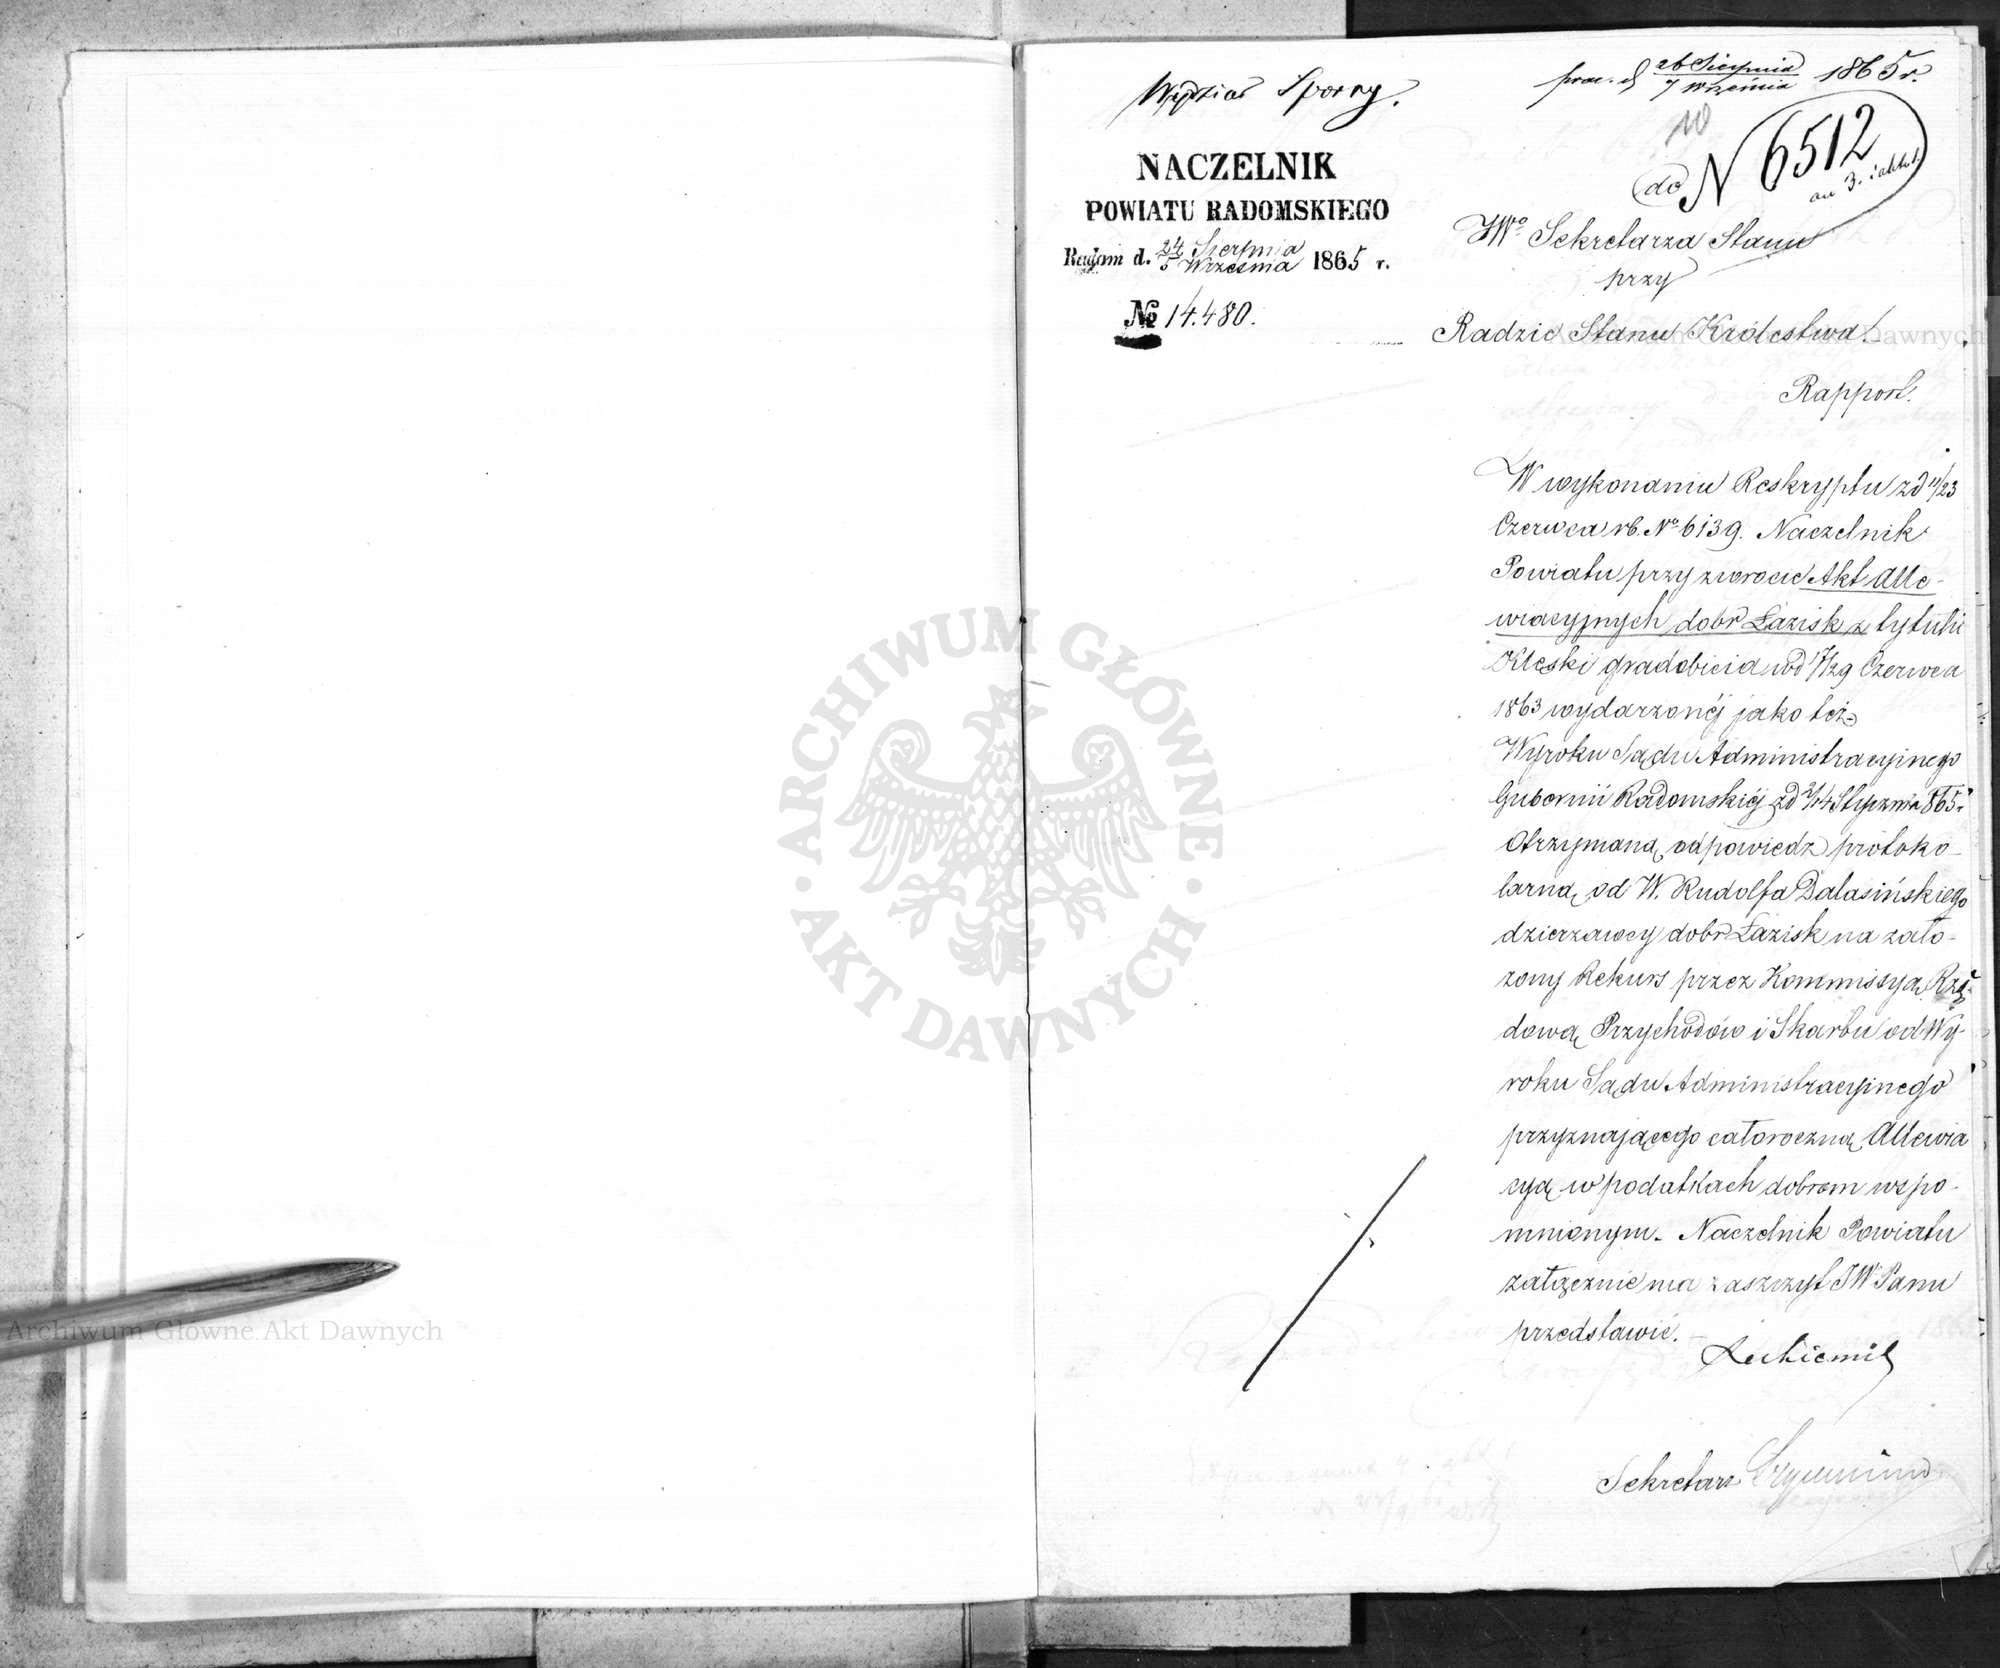 Wydział Sporny.
prae. d 26 Sierpnia / 7 Września 1865 r.
10
NACZELNIK
POWIATU RADOMSKIEGO
Radom d. 24 Sierpnia / 5 Września 1865 r.
№ 14.480.
do N 6512
JWo Sekretarza Stanu
przy
Radzie Stanu Królestwa.
Rapport.
W wykonaniu Reskryptu z d 11/23
Czerwca rb. No 6139. Naczelnik
Powiatu przy zwrocie Akt Alle-
wiacyjnych dobr Łazisk z tytułu
Klęski gradobicia w d 17/29 Czerwca
1863 wydarzonéj jako też
Wyroku Sądu Administracyjnego
Gubernii Radomskiéj z d 2/14 Stycznia 865 r
Otrzymaną odpowiedz protoko-
larną od W. Rudolfa Dalasińskiego
dzierzawcy dobr Łazisk na zało-
zony Rekurs przez Kommissyą Rzą-
dową Przychodów i Skarbu od Wy-
roku Sądu Administracyjnego
przyznającego całoroczną Allewia
cyą w podatkach dobrom wspo-
mnionym. Naczelnik Powiatu
załącznie ma zaszczyt JW Panu
przedstawić.
Sekretarz
ARCHIWUM GŁÓWNE
AKT DAWNYCH
Archiwum Główne Akt Dawnych